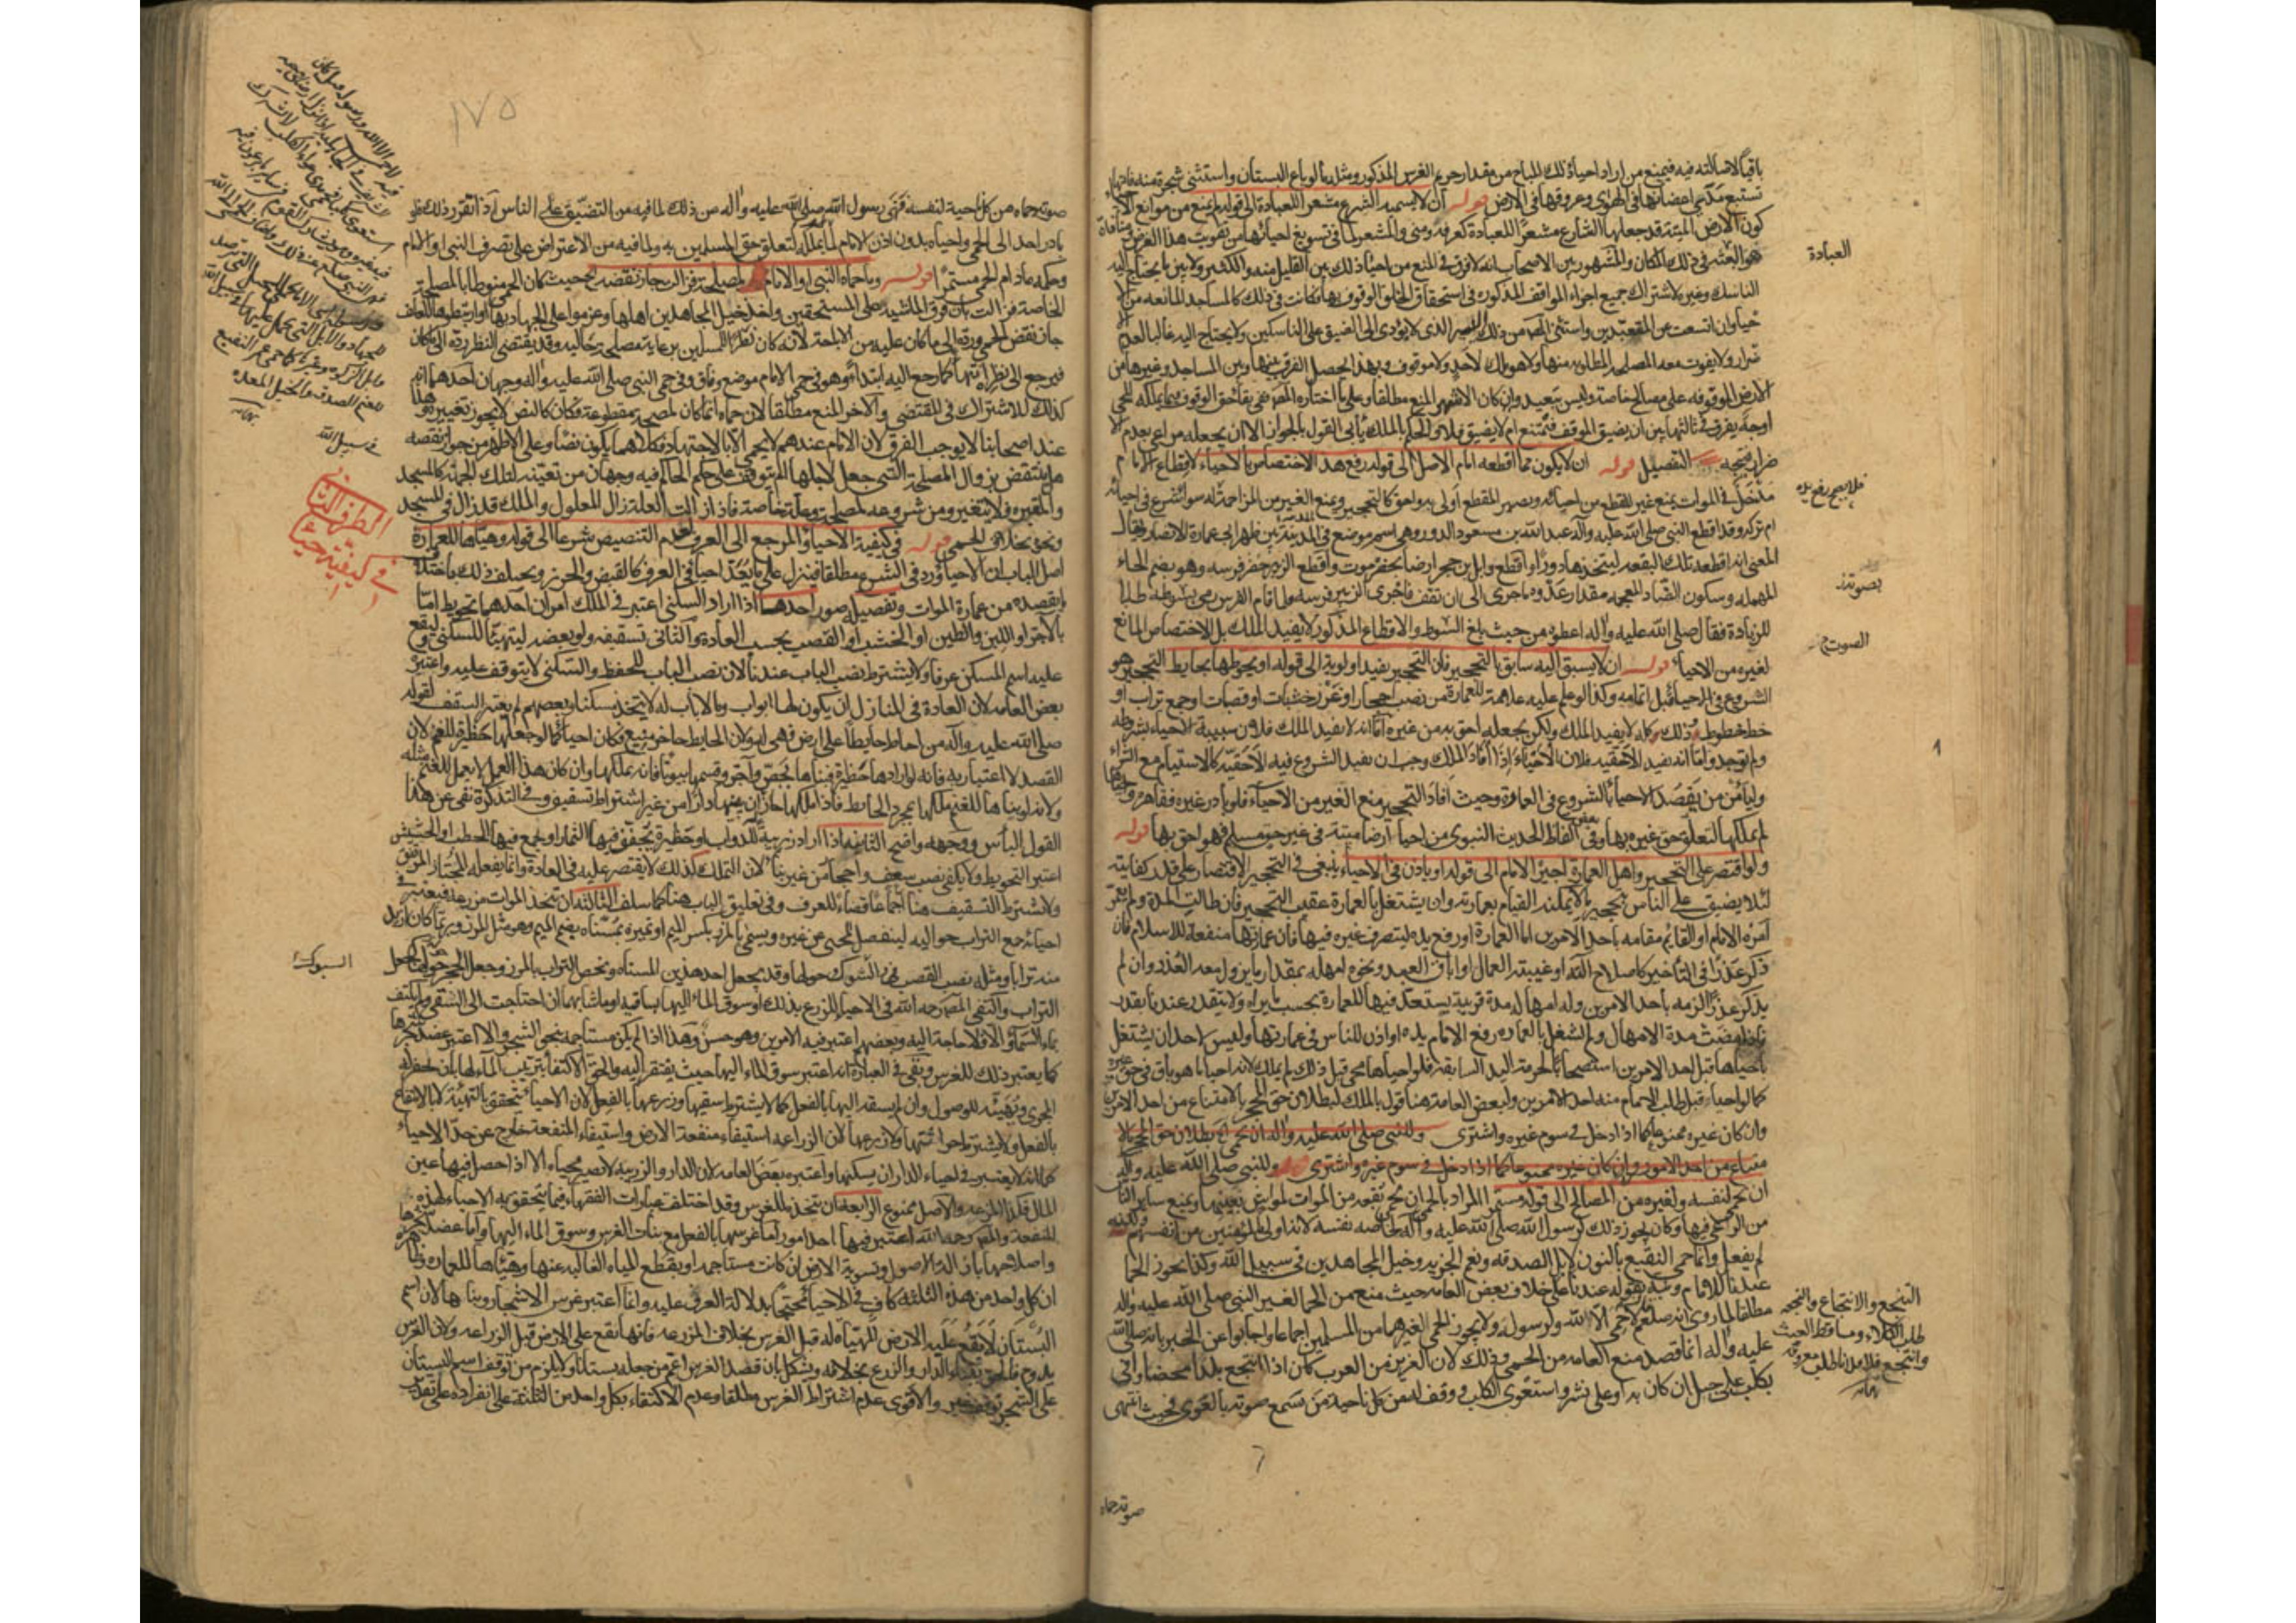 باقياً لاصالته فيه فيمنع من اراد احياء ذلك المباح من مقدار حريم الغرس المذكور ومثله ما لو باع البستان واستثنى شجرة منه فانها
تستتبع مدى اغصانها في الهوى وعروقها في الارض قوله ان لا يسميه الشرع مشعرا للعبادة الى قوله لم يمنع من موانع الاحياء
كون الارض الميتة قد جعلها الشارع مشعرًا للعبادة كعرفة ومنى والمشعر لما في تسويغ احيائها من تفويت هذا الغرض ومنافاة
هو المعتبر في ذلك المكان والمشهور بين الاصحاب انه لا فرق في المنع من احياء ذلك بين القليل منه والكثير ولا بين ما يحتاج اليه
الناسك وغيره لاشتراك جميع اجزاء المواقف المذكورة في استحقاق الخلق الوقوف بها فكانت في ذلك كالمساجد المانعة من
احياء وان اتسعت عن المتعبدين واستثنى المص من ذلك اليسير الذي لا يؤدي الى الضيق على الناسكين ولا يحتاج اليه غالبا لعدم
ضرار ولا يفوت معه المصلحة المطلوبة منها ولا هو ملك لاحد ولا موقوف وبهذا يحصل الفرق بينها وبين المساجد وغيرها من
الارض الموقوفة على مصالح خاصة وليس ببعيد وان كان الاشهر المنع مطلقا وعلى ما اختاره المص ففي بقاء حق الوقوف فيما يملكه المحيي
اوجه يفرق في ثالثها بين ان يضيق الموقف فيمتنع ام لا يضيق فلا والحكم بالملك يأبى القول بالجواز الا ان يجعله مراعى بعدم الا
ضرار فيتجه التفصيل قوله ان لا يكون مما اقطعه امام الاصل الى قوله رفع هذا الاختصاص بالاحياء لاقطاع الامام
مدخل في الموات يمنع غير المقطع من احيائه ويصير المقطع اولى به واحق كالتحجير ويمنع الغير من المزاحمة له سواء شرع في احيائه
ام تركه وقد اقطع النبي صلى الله عليه وآله عبد الله بن مسعود الدور وهي اسم موضع في المدينة بين ظهراني عمارة الانصار ويقال
المعنى انه اقطعه تلك البقعة ليتخذها دورًا واقطع وابل بن حجر ارضا بحضرموت واقطع الزبير حضر فرسه وهو بضم الحاء
المهملة وسكون الضاد المعجمة مقدار عدوه وما جرى الى ان تقف فاجرى الزبير فرسه ولما قام الفرس رمى بسوطه طلبا
للزيادة فقال صلى الله عليه وآله اعطوه من حيث بلغ السوط والاقطاع المذكور لا يفيد الملك بل الاختصاص المانع
لغيره من الاحياء قوله ان لا يسبق اليه سابق بالتحجير فان التحجير يفيد اولوية الى قوله او يحوطها بحايط التحجير هو
الشروع في الاحياء قبل اتمامه وكذا لو علم عليه علامة للعمارة من نصب احجار او غرز خشبات او قصبات او جمع تراب او
خط خطوط وذلك كله لا يفيد الملك ولكن يجعله احق به من غيره اما انه لا يفيد الملك فلان سببية الاحياء بشرطه
ولم توجد واما انه يفيد الاحقية فلان الاحياء اذا افاد الملك وجب ان يفيد الشروع فيه الاحقية كالاستيام مع الشراء
وليأمن من يقصد الاحياء بالشروع في العمارة وحيث افاد التحجير منع الغير من الاحياء فلو بادر غيره فقاهره واحياها
لم يملكها لتعلق حق غيره بها وفي بعض الفاظ الحديث النبوي من احيا ارضا ميتة في غير حق مسلم فهو احق بها قوله
ولو اقتصر على التحجير واهمل العمارة اجبره الامام الى قوله او ياذن في الاحياء ينبغي في التحجير الاقتصار على قدر كفايته
لئلا يضيق على الناس بتحجير ما لا يمكنه القيام بعمارته وان يشتغل بالعمارة عقيب التحجير فان طالت المدة ولم يعمر
امره الامام او القائم مقامه باحد الامرين اما العمارة او رفع يده ليتصرف غيره فيها فان عمارتها منفعة للاسلام فان
ذكر عذرًا في التأخير كاصلاح آلة او غيبة العمال او اباق العبد ونحوه امهله بمقدار ما يزول معه العذر وان لم
يذكر عذرًا الزمه باحد الامرين وله امهاله مدة قريبة يستعد فيها للعمارة بحسب ما يراه ولا يتقدر عندنا بقدر
فاذا مضت مدة الامهال ولم يشتغل بالعمارة رفع الامام يده او اذن للناس في عمارتها وليس لاحد ان يشتغل
باحياها قبل احد الامرين استصحابًا لحرمة اليد السابقة فلو احياها محي قبل ذلك لم يملك لانه احيا ما هو باق في حق غيره
كما لو احياه قبل طلب الامام منه احد الامرين ولبعض العامة هنا قول بالملك لبطلان حق المحجر بالامتناع من احد الامرين
وان كان غيره ممنوعا كما اذا دخل في سوم غيره واشترى وللنبي صلى الله عليه وآله ان يحمي لبطلان حق المحجر بالا
متناع من احد الامور وان كان غيره ممنوعا كما اذا دخل في سوم غيره واشترى قوله وللنبي صلى الله عليه وآله
ان يحمي لنفسه ولغيره من المصالح الى قوله مستمرا المراد بالحمى ان يحمي بقعة من الموات لمواشٍ بعينها ويمنع ساير الناس
من الرعي فيها وكان يجوز ذلك لرسول الله صلى الله عليه وآله لخاصة نفسه لانه اولى بالمؤمنين من انفسهم ولكنه
لم يفعل وانما حمى النقيع بالنون لابل الصدقة ونعم الجزية وخيل المجاهدين في سبيل الله وكذا يجوز الحما
عندنا للامام وعليه بقوله عندنا على خلاف بعض العامة حيث منع من الحما لغير النبي صلى الله عليه وآله
مطلقا لما روى انه صلعم لا حمى الا لله ولرسوله ولا يجوز الحمى لغيرهما من المسلمين اجماعا واجابوا عن الخبر بانه صلى الله
عليه وآله انما قصد منع العامة من الحمى وذلك لان العزيز من العرب كان اذا انتجع بلدا مخصبا وافى
بكلب على جبل ان كان به او على نشز واستعوى الكلب ووقف له من كل ناحية من يسمع صوته بالعوى فحيث انتهى
العبادة
فلا يصح رفع يده
بصوته
الصوت
التنجع والانتجاع والنجعة
طلب الكلاء ومساقط الغيث
وانتجع فلان فلانا طلب معروفه
صوته حماه
١٧٥
صوته حماه من كل ناحية لنفسه فنهى رسول الله صلى الله عليه وآله من ذلك لما فيه من التضيق على الناس اذا تقرر ذلك فلو
بادر احد الى الحمى واحياه بدون اذن الامام لم يملكه لتعلق حق المسلمين به ولما فيه من الاعتراض على تصرف النبي او الامام
وحكمه ما دام الحمى مستمرا قوله وما حماه النبي او الامام لمصلحة فزالت جاز نقضه حيث كان الحمى منوطا بالمصلحة
الخاصة فزالت بان فرق الماشية على المستحقين واخذ خيل المجاهدين اهلها وعزموا على الجهاد بها او ارتبطوها للعلف
جاز نقض الحمى ورده الى ما كان عليه من الاباحة لانه كان نظرًا للمسلمين برعاية مصلحة حالية وقد يقتضي النظر رده الى ما كان
فيرجع الى نظره انتهاءً كما رجع اليه ابتداءً وهو في حمى الامام موضع وفاق وفي حمى النبي صلى الله عليه وآله وجهان احدهما انه
كذلك للاشتراك في المقتضي والآخر المنع مطلقا لان حماه انما كان لمصلحة مقطوعة فكان كالنص لا يجوز تغييره وهذا
عند اصحابنا لا يوجب الفرق لان الامام عندهم لا يحمي الا بالاجتهاد فكلاهما يكون نصًا وعلى الاظهر من جواز نقضه
هل ينتقض بزوال المصلحة التي جعل لاجلها ام يتوقف على حكم الحاكم فيه وجهان من تعينه لتلك الجهة كالمسجد
والمقبرة فلا يتغير ومن شروعه لمصلحة وعلة خاصة فاذا زالت العلة زال المعلول والملك قد زال في المسجد
ونحوه بخلاف الحمى قوله في كيفية الاحياء والمرجع الى العرف لعدم التنصيص شرعا الى قوله وهيأها للعمارة
اصل الباب ان الاحياء ورد في الشرع مطلقا فينزل على ما يعد احياءً في العرف كالقبض والحرز ويختلف ذلك باختلاف
ما يقصده من عمارة الموات وتفصيل صوره احدها اذا اراد السكنى اعتبر في الملك امران احدهما تحويط امّا
بالآجر او اللبن والطين او الخشب او القصب بحسب العادة والثاني تسقيفه ولو بعضه ليتهيأ للسكنى ويقع
عليه اسم المسكن عرفا ولا يشترط نصب الباب عندنا لان نصب الباب للحفظ والسكنى لا يتوقف عليه واعتبره
بعض العامة لان العادة في المنازل ان يكون لها ابواب وما لا باب له لا يتخذ مسكنا وبعضهم لم يعتبر السقف لقوله
صلى الله عليه وآله من احاط حايطًا على ارض فهي له ولان الحايط حاجز منيع فكان احياءً كما لو جعلها حظيرة للغنم لان
القصد لا اعتبار به فانه لو ارادها حظيرة فبناها بجص وآجر وقسمها بيوتًا فانه يملكها وان كان هذا العمل لا يعمل للغنم مثله
ولانه لو بناها للغنم ملكها بمجرد الحايط فاذا ملكها جاز ان يبنيها دارًا من غير اشتراط تسقيف وفي التذكرة نفى عن هذا
القول البأس ووجهه واضح الثانية اذا اراد زريبة للدواب او حظيرة يجفف فيها الثمار او يجمع فيها الحطب والحشيش
اعتبر التحويط ولا يكفي نصب سعف واحجار من غير بناء لان التملك كذلك لا يقتصر عليه في العادة وانما يفعله المجتاز المرتفق
ولا يشترط التسقيف هنا اجماعا قضاءً للعرف وفي تعليق الباب هنا كما سلف الثالثة ان يتخذ الموات مزرعة فيعتبر في
احيائه جمع التراب حواليه لينفصل المحيى عن غيره ويسمى بالمرز بكسر الميم او تميزه بمسناة بضم الميم وهو مثل المرز وربما كان ازيد
منه ترابا ومثله نصب القصب والشوك حولها وقد يجعل احد هذين المسناة ويخص التراب بالمرز وجعل الحجر حولها كجعل
التراب واكتفى المص رحمه الله في الاحياء للزرع بذلك او سوق الماء اليها بساقية او ما شابهها ان احتاجت الى السقي ولم يكتف
بماء السماء والا فلا حاجة اليه وبعضهم اعتبر فيه الامرين وهو حسن وهذا اذا لم يكن مستأجمة بنحو الشجر والا اعتبر عضد شجرها
كما يعتبر ذلك للغرس وبقي في العبارة انه اعتبر سوق الماء اليها حيث يفتقر اليه والحق الاكتفاء بترتيب الماء لها بان يحفر له
المجرى وتهيئته للوصول وان لم يسقه اليها بالفعل كما لا يشترط سقيها وزرعها بالفعل لان الاحياء يتحقق بالتهيئة لا بالانتفاع
بالفعل ولا يشترط حراثتها ولا زرعها لان الزراعة استيفاء منفعة الارض واستيفاء المنفعة خارج عن حد الاحياء
كما انه لا يعتبر في احياء الدار ان يسكنها واعتبره بعض العامة لان الدار والزريبة لا تصير محياة الا اذا حصل فيها عين
المال فكذا المزرعة والاصل ممنوع الرابعة ان يتخذ للغرس وقد اختلفت عبارات الفقهاء فيما يتحقق به الاحياء لهذه
المنفعة والمص رحمه الله اعتبر فيها احد امور اما غرسها بالفعل مع نبات الغرس وسوق الماء اليها واما عضد شجرها
واصلاحها بازالة الاصول وتسوية الارض ان كانت مستأجمة او يقطع المياه الغالبة عنها وهيأها للعمارة وظاهره
ان كل واحد من هذه الثلثة كاف في الاحياء محتجا بدلالة العرف عليه وانما اعتبر غرس الاشجار ونباتها لان اسم
البستان لا يقع على الارض المهيأة له قبل الغرس بخلاف المزرعة فانها تقع على الارض قبل الزراعة ولان الغرس
يدوم فالحق ببناء الدار والزرع بخلافه ويشكل بان قصد الغرس اعم من جعله بستانا ولا يلزم من توقف اسم البستان
على الشجر توقف غيره والاقوى عدم اشتراط الغرس مطلقا وعدم الاكتفاء بكل واحد من الثلثة على انفراده على تقدير
الشوك
الطرف الثاني
في كيفية احيائه
للغنم الصدقة والخيل المعده
في سبيل الله